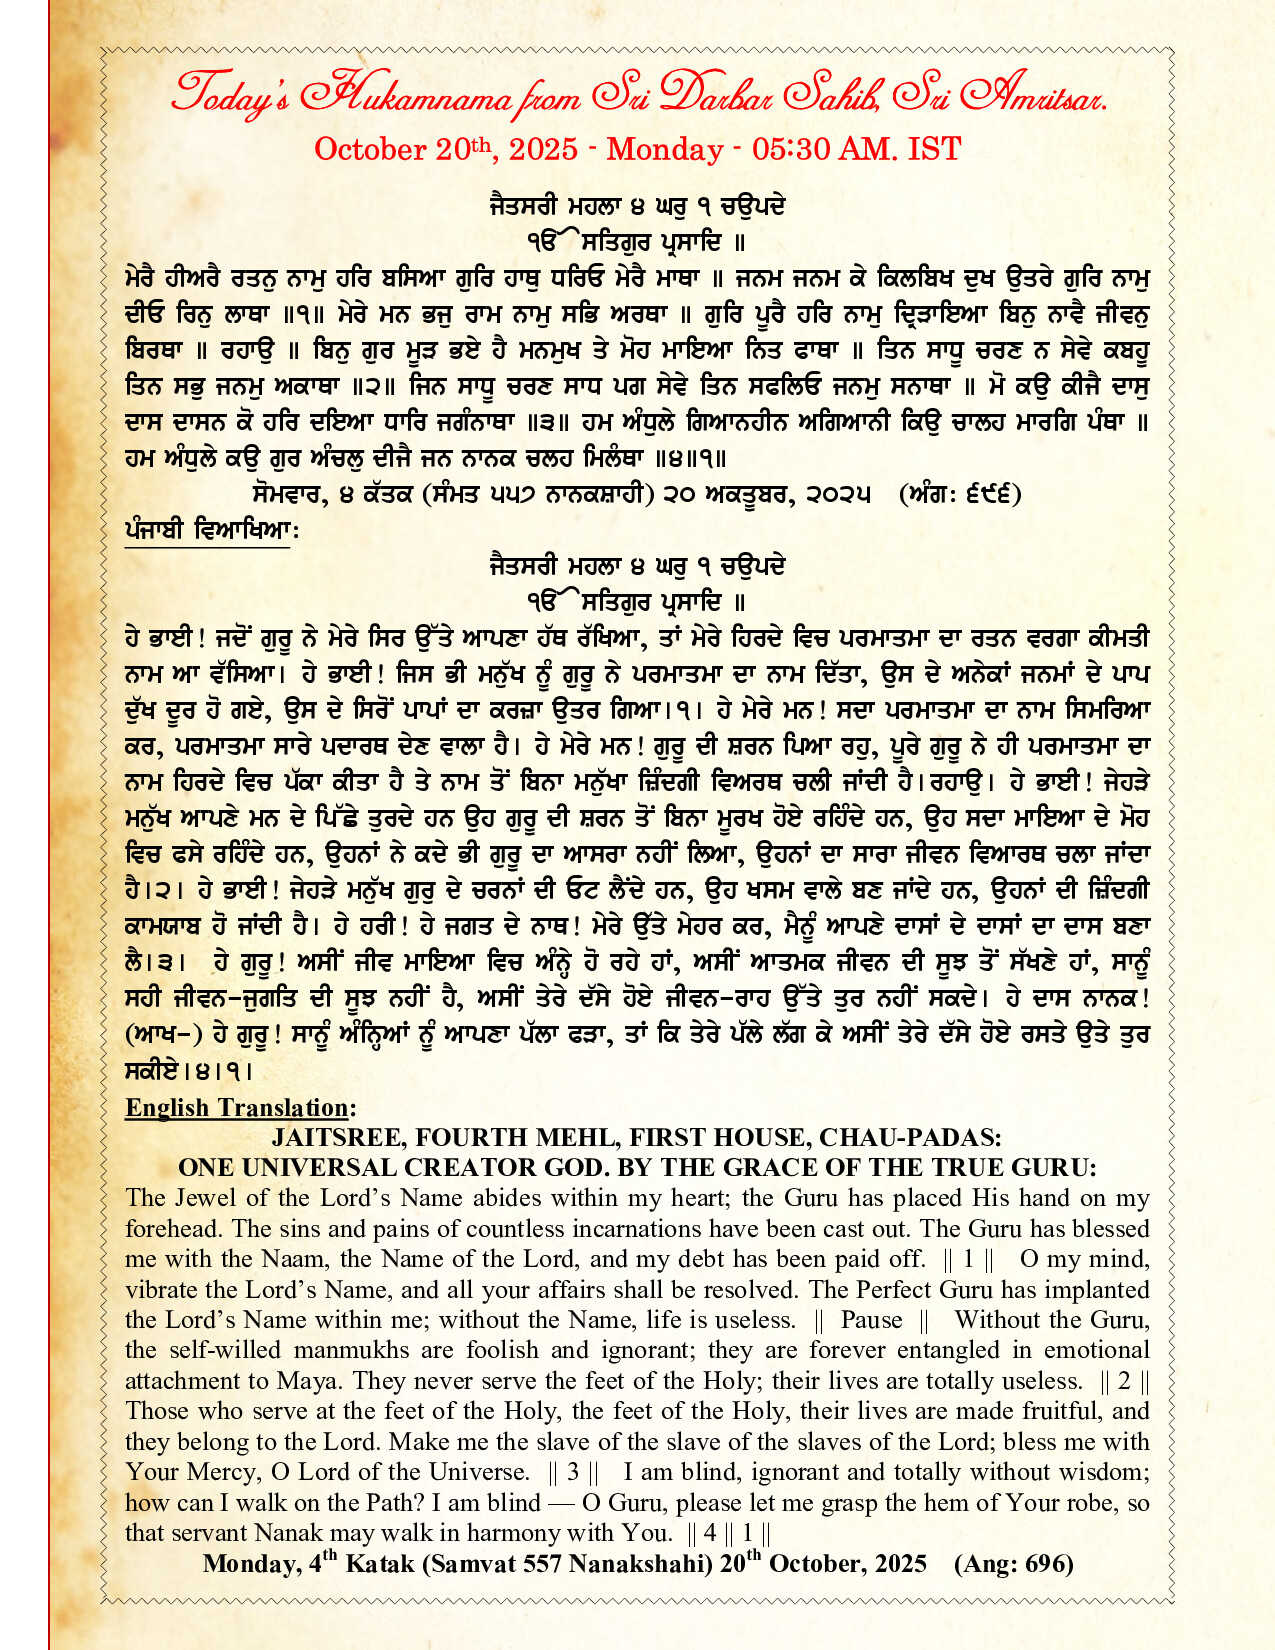 Today's Hukamnama from Sri Darbar Sahib, Sri Amritsar.
October 20th, 2025 - Monday - 05:30 AM. IST
ਜੈਤਸਰੀ ਮਹਲਾ ੪ ਘਰੁ ੧ ਚਉਪਦੇ
ੴ ਸਤਿਗੁਰ ਪ੍ਰਸਾਦਿ ॥
ਮੇਰੈ ਹੀਅਰੈ ਰਤਨੁ ਨਾਮੁ ਹਰਿ ਬਸਿਆ ਗੁਰਿ ਹਾਥੁ ਧਰਿਓ ਮੇਰੈ ਮਾਥਾ ॥ ਜਨਮ ਜਨਮ ਕੇ ਕਿਲਬਿਖ ਦੁਖ ਉਤਰੇ ਗੁਰਿ ਨਾਮੁ
ਦੀਓ ਰਿਨੁ ਲਾਥਾ ॥੧॥ ਮੇਰੇ ਮਨ ਭਜੁ ਰਾਮ ਨਾਮੁ ਸਭਿ ਅਰਥਾ ॥ ਗੁਰਿ ਪੂਰੈ ਹਰਿ ਨਾਮੁ ਦ੍ਰਿੜਾਇਆ ਬਿਨੁ ਨਾਵੈ ਜੀਵਨੁ
ਬਿਰਥਾ ॥ ਰਹਾਉ ॥ ਬਿਨੁ ਗੁਰ ਮੂੜ ਭਏ ਹੈ ਮਨਮੁਖ ਤੇ ਮੋਹ ਮਾਇਆ ਨਿਤ ਫਾਥਾ ॥ ਤਿਨ ਸਾਧੂ ਚਰਣ ਨ ਸੇਵੇ ਕਬਹੂ
ਤਿਨ ਸਭੁ ਜਨਮੁ ਅਕਾਥਾ ॥੨॥ ਜਿਨ ਸਾਧੂ ਚਰਣ ਸਾਧ ਪਗ ਸੇਵੇ ਤਿਨ ਸਫਲਿਓ ਜਨਮੁ ਸਨਾਥਾ ॥ ਮੋ ਕਉ ਕੀਜੈ ਦਾਸੁ
ਦਾਸ ਦਾਸਨ ਕੋ ਹਰਿ ਦਇਆ ਧਾਰਿ ਜਗੰਨਾਥਾ ॥੩॥ ਹਮ ਅੰਧੁਲੇ ਗਿਆਨਹੀਨ ਅਗਿਆਨੀ ਕਿਉ ਚਾਲਹ ਮਾਰਗਿ ਪੰਥਾ ॥
ਹਮ ਅੰਧੁਲੇ ਕਉ ਗੁਰ ਅੰਚਲੁ ਦੀਜੈ ਜਨ ਨਾਨਕ ਚਲਹ ਮਿਲੰਥਾ ॥੪॥੧॥
ਸੋਮਵਾਰ, ੪ ਕੱਤਕ (ਸੰਮਤ ੫੫੭ ਨਾਨਕਸ਼ਾਹੀ) ੨੦ ਅਕਤੂਬਰ, ੨੦੨੫ (ਅੰਗ: ੬੯੬)
ਪੰਜਾਬੀ ਵਿਆਖਿਆ:
ਜੈਤਸਰੀ ਮਹਲਾ ੪ ਘਰੁ ੧ ਚਉਪਦੇ
ੴ ਸਤਿਗੁਰ ਪ੍ਰਸਾਦਿ ॥
ਹੇ ਭਾਈ! ਜਦੋਂ ਗੁਰੂ ਨੇ ਮੇਰੇ ਸਿਰ ਉੱਤੇ ਆਪਣਾ ਹੱਥ ਰੱਖਿਆ, ਤਾਂ ਮੇਰੇ ਹਿਰਦੇ ਵਿਚ ਪਰਮਾਤਮਾ ਦਾ ਰਤਨ ਵਰਗਾ ਕੀਮਤੀ
ਨਾਮ ਆ ਵੱਸਿਆ। ਹੇ ਭਾਈ! ਜਿਸ ਭੀ ਮਨੁੱਖ ਨੂੰ ਗੁਰੂ ਨੇ ਪਰਮਾਤਮਾ ਦਾ ਨਾਮ ਦਿੱਤਾ, ਉਸ ਦੇ ਅਨੇਕਾਂ ਜਨਮਾਂ ਦੇ ਪਾਪ
ਦੁੱਖ ਦੂਰ ਹੋ ਗਏ, ਉਸ ਦੇ ਸਿਰੋਂ ਪਾਪਾਂ ਦਾ ਕਰਜ਼ਾ ਉਤਰ ਗਿਆ।੧। ਹੇ ਮੇਰੇ ਮਨ! ਸਦਾ ਪਰਮਾਤਮਾ ਦਾ ਨਾਮ ਸਿਮਰਿਆ
ਕਰ, ਪਰਮਾਤਮਾ ਸਾਰੇ ਪਦਾਰਥ ਦੇਣ ਵਾਲਾ ਹੈ। ਹੇ ਮੇਰੇ ਮਨ! ਗੁਰੂ ਦੀ ਸ਼ਰਨ ਪਿਆ ਰਹੁ, ਪੂਰੇ ਗੁਰੂ ਨੇ ਹੀ ਪਰਮਾਤਮਾ ਦਾ
ਨਾਮ ਹਿਰਦੇ ਵਿਚ ਪੱਕਾ ਕੀਤਾ ਹੈ ਤੇ ਨਾਮ ਤੋਂ ਬਿਨਾ ਮਨੁੱਖਾ ਜ਼ਿੰਦਗੀ ਵਿਅਰਥ ਚਲੀ ਜਾਂਦੀ ਹੈ।ਰਹਾਉ। ਹੇ ਭਾਈ! ਜੇਹੜੇ
ਮਨੁੱਖ ਆਪਣੇ ਮਨ ਦੇ ਪਿੱਛੇ ਤੁਰਦੇ ਹਨ ਉਹ ਗੁਰੂ ਦੀ ਸ਼ਰਨ ਤੋਂ ਬਿਨਾ ਮੂਰਖ ਹੋਏ ਰਹਿੰਦੇ ਹਨ, ਉਹ ਸਦਾ ਮਾਇਆ ਦੇ ਮੋਹ
ਵਿਚ ਫਸੇ ਰਹਿੰਦੇ ਹਨ, ਉਹਨਾਂ ਨੇ ਕਦੇ ਭੀ ਗੁਰੂ ਦਾ ਆਸਰਾ ਨਹੀਂ ਲਿਆ, ਉਹਨਾਂ ਦਾ ਸਾਰਾ ਜੀਵਨ ਵਿਆਰਥ ਚਲਾ ਜਾਂਦਾ
ਹੈ।੨। ਹੇ ਭਾਈ! ਜੇਹੜੇ ਮਨੁੱਖ ਗੁਰੁ ਦੇ ਚਰਨਾਂ ਦੀ ਓਟ ਲੈਂਦੇ ਹਨ, ਉਹ ਖਸਮ ਵਾਲੇ ਬਣ ਜਾਂਦੇ ਹਨ, ਉਹਨਾਂ ਦੀ ਜ਼ਿੰਦਗੀ
ਕਾਮਯਾਬ ਹੋ ਜਾਂਦੀ ਹੈ। ਹੇ ਹਰੀ! ਹੇ ਜਗਤ ਦੇ ਨਾਥ! ਮੇਰੇ ਉੱਤੇ ਮੇਹਰ ਕਰ, ਮੈਨੂੰ ਆਪਣੇ ਦਾਸਾਂ ਦੇ ਦਾਸਾਂ ਦਾ ਦਾਸ ਬਣਾ
ਲੈ।੩। ਹੇ ਗੁਰੂ! ਅਸੀਂ ਜੀਵ ਮਾਇਆ ਵਿਚ ਅੰਨ੍ਹੇ ਹੋ ਰਹੇ ਹਾਂ, ਅਸੀਂ ਆਤਮਕ ਜੀਵਨ ਦੀ ਸੂਝ ਤੋਂ ਸੱਖਣੇ ਹਾਂ, ਸਾਨੂੰ
ਸਹੀ ਜੀਵਨ-ਜੁਗਤਿ ਦੀ ਸੂਝ ਨਹੀਂ ਹੈ, ਅਸੀਂ ਤੇਰੇ ਦੱਸੇ ਹੋਏ ਜੀਵਨ-ਰਾਹ ਉੱਤੇ ਤੁਰ ਨਹੀਂ ਸਕਦੇ। ਹੇ ਦਾਸ ਨਾਨਕ!
(ਆਖ-) ਹੇ ਗੁਰੂ! ਸਾਨੂੰ ਅੰਨ੍ਹਿਆਂ ਨੂੰ ਆਪਣਾ ਪੱਲਾ ਫੜਾ, ਤਾਂ ਕਿ ਤੇਰੇ ਪੱਲੇ ਲੱਗ ਕੇ ਅਸੀਂ ਤੇਰੇ ਦੱਸੇ ਹੋਏ ਰਸਤੇ ਉਤੇ ਤੁਰ
ਸਕੀਏ।੪।੧।
English Translation:
JAITSREE, FOURTH MEHL, FIRST HOUSE, CHAU-PADAS:
ONE UNIVERSAL CREATOR GOD. BY THE GRACE OF THE TRUE GURU:
The Jewel of the Lord's Name abides within my heart; the Guru has placed His hand on my
forehead. The sins and pains of countless incarnations have been cast out. The Guru has blessed
me with the Naam, the Name of the Lord, and my debt has been paid off. || 1 || O my mind,
vibrate the Lord's Name, and all your affairs shall be resolved. The Perfect Guru has implanted
the Lord's Name within me; without the Name, life is useless. || Pause || Without the Guru,
the self-willed manmukhs are foolish and ignorant; they are forever entangled in emotional
attachment to Maya. They never serve the feet of the Holy; their lives are totally useless. || 2 ||
Those who serve at the feet of the Holy, the feet of the Holy, their lives are made fruitful, and
they belong to the Lord. Make me the slave of the slave of the slaves of the Lord; bless me with
Your Mercy, O Lord of the Universe. || 3 || I am blind, ignorant and totally without wisdom;
how can I walk on the Path? I am blind — O Guru, please let me grasp the hem of Your robe, so
that servant Nanak may walk in harmony with You. || 4 || 1 ||
Monday, 4th Katak (Samvat 557 Nanakshahi) 20th October, 2025 (Ang: 696)